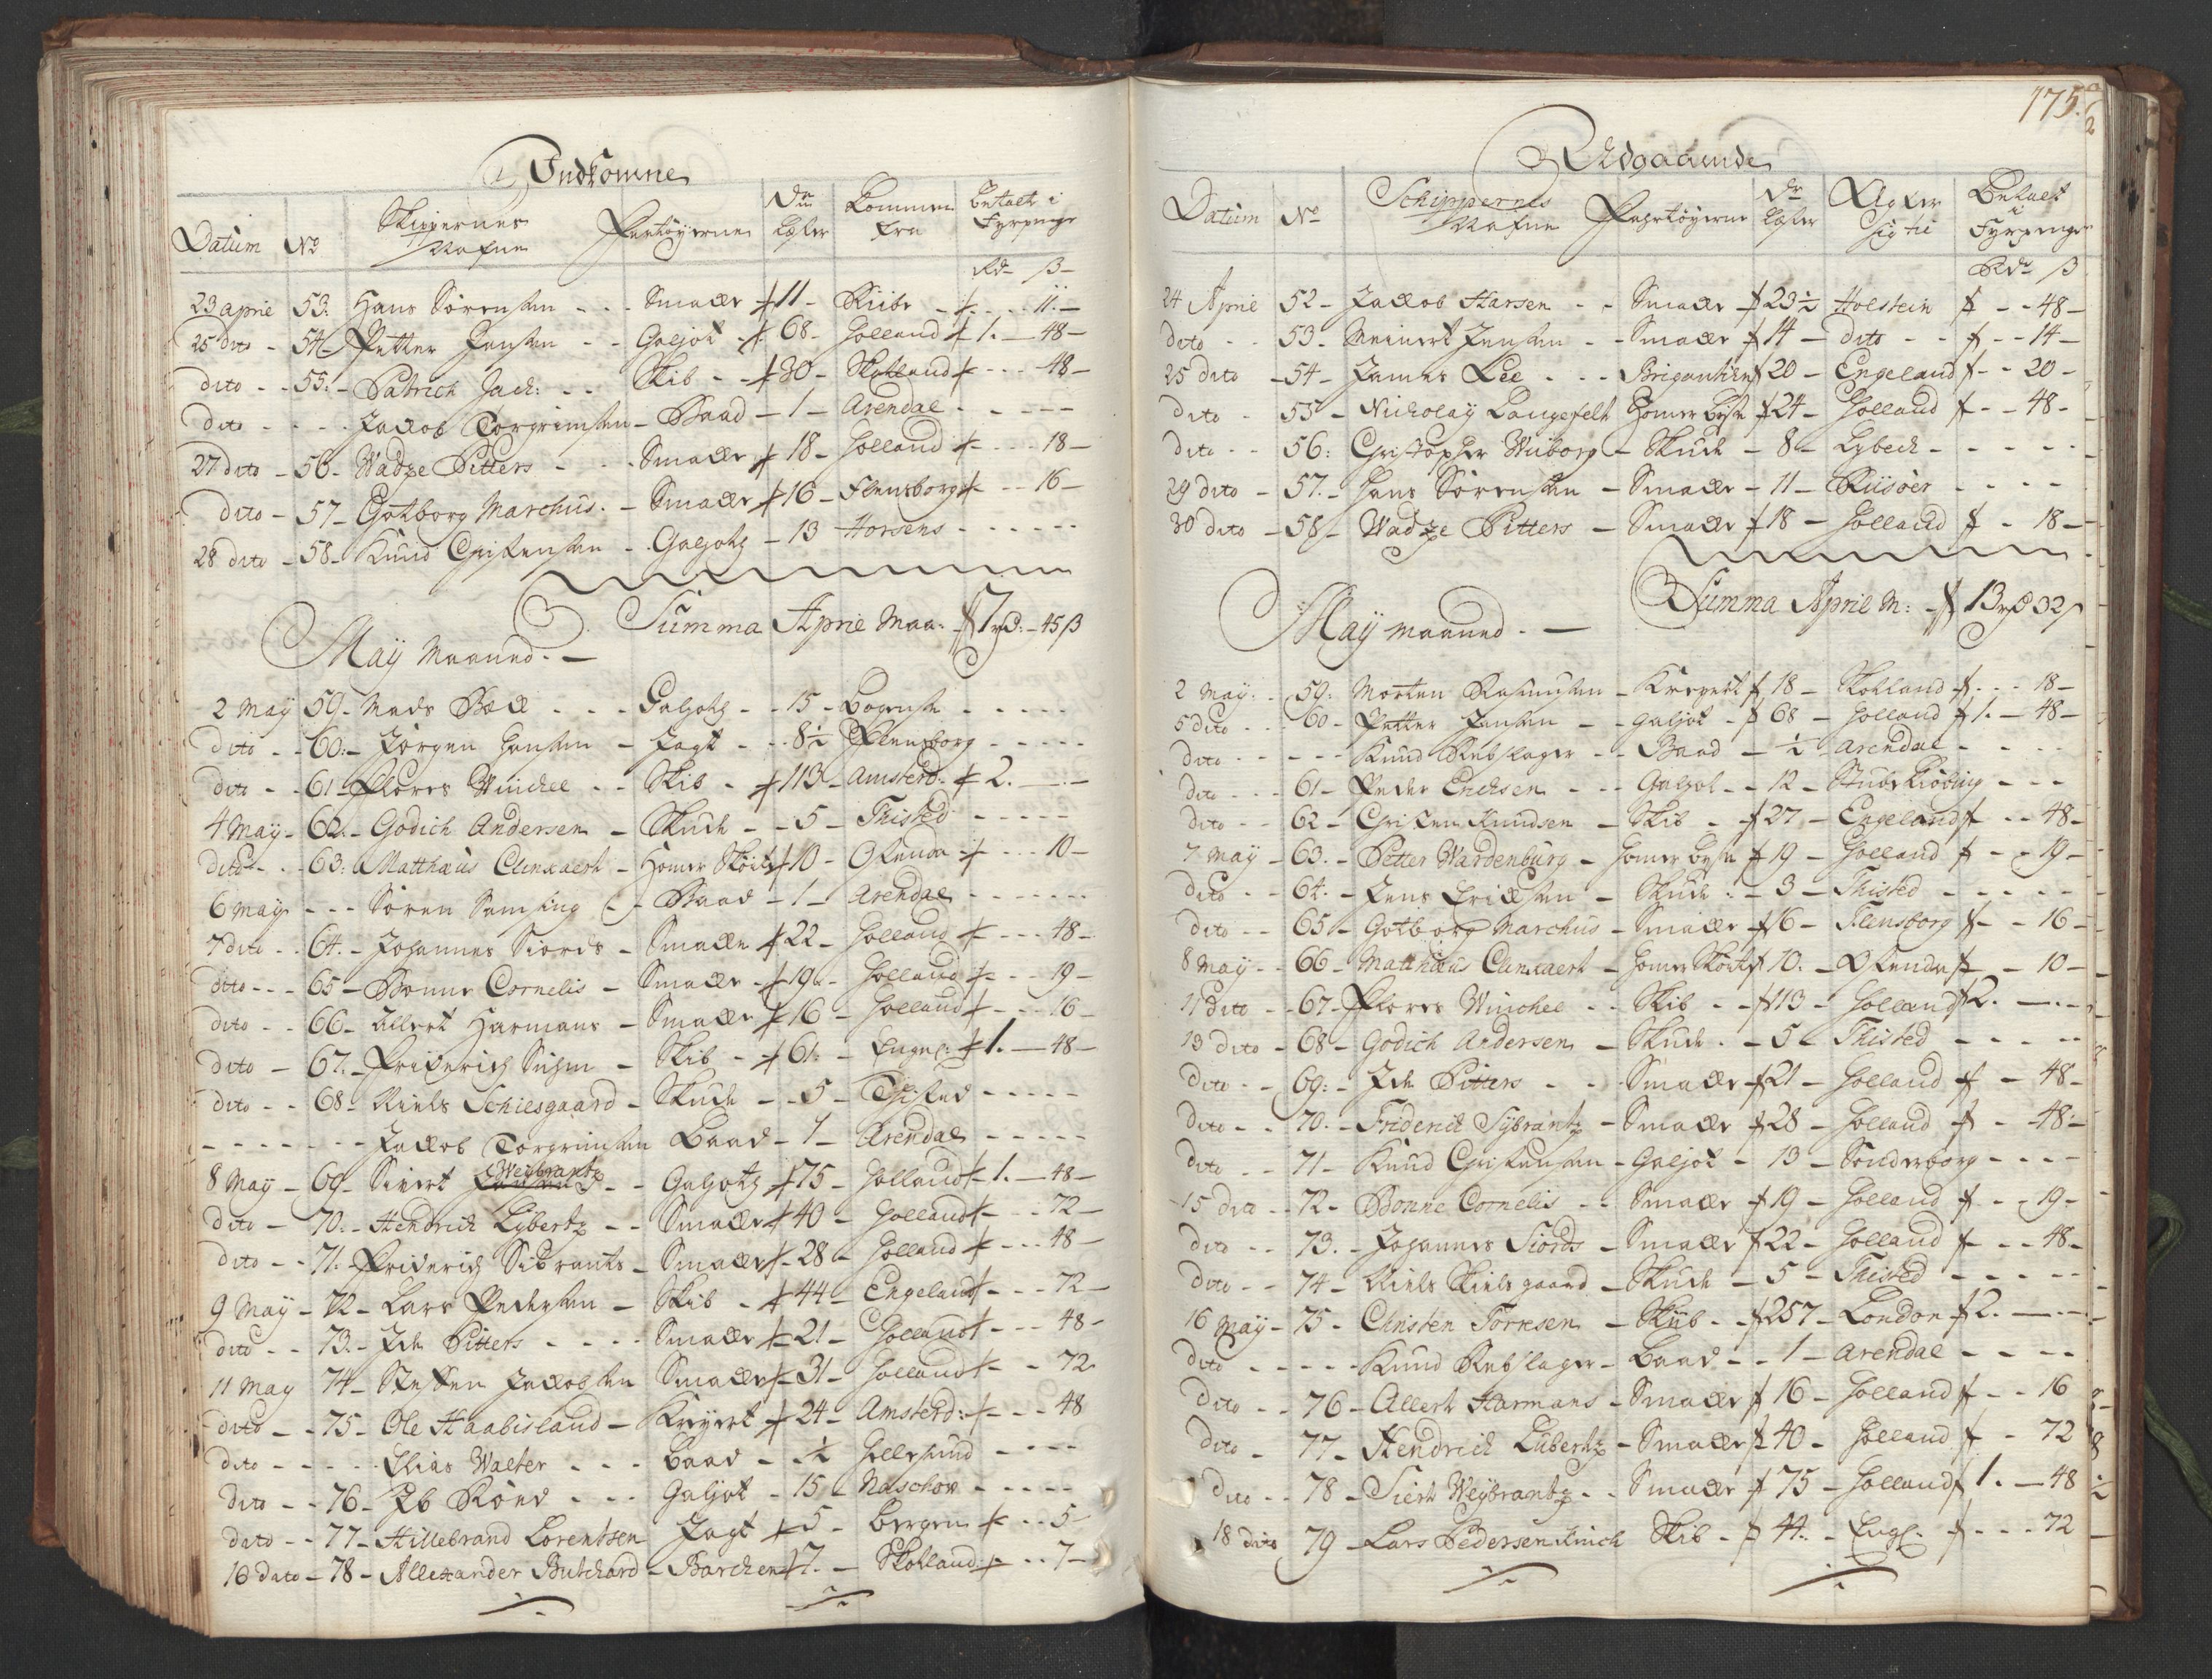 Indkomne
Datum No Skippernes Nafne Fartøyerne Dr: Læster Kommen fra Betalt i Fyrpenge
Rd ß
23 april 53. Hans Sørensen - - - Smakke 11 - Riiber - - - 11 -
25 dito - 54 - Petter Jansen - - Galjot - 68 - Holland 1. - 48 -
dito - - 55. - Patrich Jack: - - Skib - - 30 - Skotland - - - 48 -
dito - - - - Jacob Torgrimsen - Baad - 1 - Arendal - - - - -
27 dito - 56 - Wadze Pitters - - - Smakke 18 - Holland - - - 18 -
dito - 57 - Gotborg Marchus. - Smakke 16 - Flensborg - - 16 -
28 dito - 58 - Knud Christensen - Galjotz - 13 Horsens - - - - - -
Summa April Maa: 7 rd: - 45 ß
May Maaned. -
2 May 59 - Mads Bæk - - - Galjotz - - 15 - Bogense - - - - -
dito - - 60: - Jørgen Hansen - Jagt - - 8½ Flensborg - - - - -
dito - - 61 - Flores Winckel - - Skib - 113 - Amsterd: 2. - . -
4 May - 62. - Godich Andersen - Skude - - 5 - Thisted - - - - -
dito - - 63: Matthæus Clinkaert - Homer Skøite 10 - Ostende - - - 10 -
6 May - - - Søren Samsing - - Baad - 1 - Arendal - - - - - -
7 dito - - 64. - Johannes Siords - Smakke 22 - Holland - - - 48 -
dito - - - 65 - Bonne Cornelis - Smakke - 19 - Holland - - - 19 -
dito - - 66 - Allert Harmans - Smakke 16 - Holland - - - 16 -
dito - 67. - Friderich Suhm - Skib - - 61: - Engel: 1. - 48 -
dito - - 68 - Niels Schiesgaard - Skude - - 5 - Thisted - - - - -
- - - - - - - - Jacob Torgrimsen Baad - 1 - Arendal - - - - -
8 May - 69 - Sivert Weybrantz - - Galjotz 75 - Holland 1. - 48 -
dito - 70. - Hendrich Lybertz - - Smakke 40 - Holland - - - 72 -
dito - - 71. - Friderich Sibrants - Smakke - 28 - Holland - - - 48 -
9 May - 72 - Lars Pedersen - Skib - 44 - Engeland - - - 72 -
dito - - 73. - Ide Pitters - - - - Smakke 21 - Holland - - - 48 -
11 May 74 - Steffen Jacobsen Smakke 31 - Holland - - 72
dito - - 75 - Ole Haabisland - Kreyert 24 - Amsterd: - - - 48
dito - - - - - Elias Walter - - - Baad - - ½ Hellesund - - - -
dito - - 76 - Ib Rønd - - - Galjot - 15 - Naschow - - - - -
dito - - 77 - Hillebrand Lorentsen Jagt 5 - Bergen - - 5 -
16 dito - 78 - Allexander Butchard - Barchen 7. - Skotland: - - 7 -
175.
Udgaaende
Datum No Schippernes Nafne Fahrtøyerne Dr Læster Agter Sig til Betalt i Fyrpenge
Rdr ß
24 April 52 - Jacob Harsen - - Smakke 23½ Holstein - - 48 -
dito - - 53 - Meinert Jensen - - Smakke 14 - dito - - - - 14 -
25 dito - 54 - James Lee - - - Brigantin 20 - Engeland - - 20 -
dito - 55 - Nicholay Langefelt Homer Bøse 24 - Holland - - 48 -
dito - - 56: Christopher Wiborg - Skude - 8 - Lybeck - - - - -
29 dito - 57. - Hans Sørensen - Smakke - 11 - Riisøer - - - -
30 dito - 58 - Wadze Pitters - Smakke 18 - Holland - 18 -
Summa April M: 13 rd 32 ß
May Maaned. -
2 May: - 59: Morten Rasmussen - Kreyert 18 - Skotland - - - 18 -
5 dito - - 60 - Petter Jansen - - Galjot - 68 - Holland 1. - 48 -
dito - - - - - Knud Rebslager - - Baad - ½ Arendal - - - -
dito - - - 61 - Peder Erichsen - - - Galjot - - 12 - Stubekiøbing - - -
dito - - 62 - Christen Knudsen - Skib - 27 - Engeland - - 48 -
7 May - 63. - Petter Wardenburg - Homer Bøse 19 - Holland - - 19 -
dito - - 64. - Jens Eriksen - Skude - - 3 - Thisted - - - - -
dito - - 65 - Gotborg Marchus - Smakke 16 - Flensborg - - 16 -
8 May - - 66 - Matthæus Clinkaert - Homer Skøite 10. - Ostende - 10 -
11 dito - - 67 - Flores Winchel - - Skib - - 113 - Holland 2. - . -
13 dito - 68 - Godich Andersen - Skude. - 5 - Thisted - - - - -
dito - - 69: - Ide Pitters - - - Smakke 21 - Holland - 48 -
dito - - 70. - Friderich Sybrantz - Smakke 28 - Holland - 48 -
dito - - 71 - Knud Christensen - Galjot - 13 - Sonderborg - - - -
15 dito - - 72 - Bonne Cornelis - - Smakke 19 - Holland - - 19 -
dito - - 73. - Johannes Siords - Smakke 22 - Holland - - 48 -
dito - - 74 - Niels Skielsgaard - Skude - 5 - Thisted - - - - -
16 May - 75 - Christen Torresen - Skib - - 257 - London 2. - . -
dito - - - - - Knud Rebslager - Baad - - 1 - Arendal - - - -
dito - - 76 - Allert Harmans - Smakke 16 - Holland - - 16
dito - 77 - Hendrich Lübertz - Smakke 40 - Holland - 72
dito - - 78 - Siert Weybrantz - - Smakke 75 - Holland 1. - 48
18 dito 79 - Lars Pedersen Skib - 44. - Engl. - - - 72